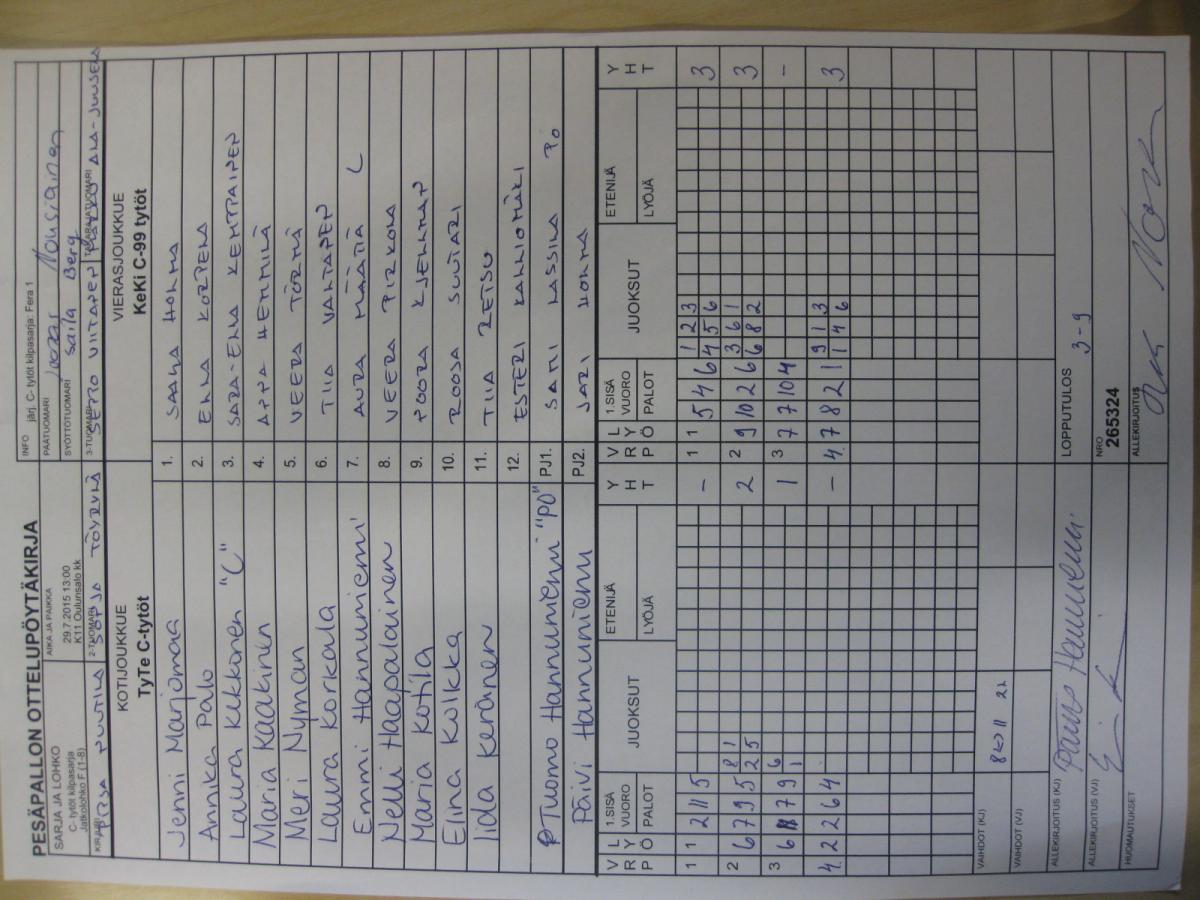 PESÄPALLON OTTELUPÖYTÄKIRJA
SARJA JA LOHKO
C- tytöt kilpasarja
Jatkolohko F (1-8)
AIKA JA PAIKKA
29.7.2015 13:00
K11 Oulunsalo kk
INFO järj. C- tytöt kilpasarja: Fera 1
PÄÄTUOMARI Joonas Nousiainen
SYÖTTÖTUOMARI Saila Berg
KIRJURI
2-TUOMARI
3-TUOMARI
TAKARAJATUOMARI
KOTIJOUKKUE
TyTe C-tytöt
VIERASJOUKKUE
KeKi C-99 tytöt
Jenni Marjomaa 1. SAANA HOHMA
Annika Palo 2. ENNA KORPELA
Laura Kukkonen "C" 3. SARA-ELNA KEMPPAINEN
Maria Kaakinen 4. HEMMILÄ
Meri Nyman 5. VEERA TÖRMÄ
Laura Korkala 6. TIIA
Emmi Hannuniemi 7. AURA MÄÄTTÄ C
Nelli Haapalainen 8. VEERA PIRKOLA
Maria Kotila 9. NOORA KJELLMAN
Elina Kolkka 10. ROOSA SUUTARI
Iida Keränen 11. TIIA
12. ESTERI KALLIOMÄKI
Tuomo Hannuniemi "PO" PJ1. SAMI LASSILA PO
Päivi Hannuniemi PJ2. JARI HOHMA
V R P L Y Ö 1.SISÄ VUORO PALOT JUOKSUT ETENIJÄ LYÖJÄ Y H T
V R P L Y Ö 1.SISÄ VUORO PALOT JUOKSUT ETENIJÄ LYÖJÄ Y H T
1 1 2 11 5 - 1 1 5 4 6 1 2 3 4 5 6 3
2 6 7 9 5 8 1 2 5 2 2 9 10 2 6 3 6 1 6 8 2 3
3 6 7 9 6 1 1 3 7 7 10 4 -
4. 2 2 6 4 - 4. 7 8 2 1 9 1 3 1 4 6 3
VAIHDOT (KJ) 8<->11 2L
VAIHDOT (VJ)
ALLEKIRJOITUS (KJ) Päivi Hannuniemi
LOPPUTULOS 3-9
ALLEKIRJOITUS (VJ)
NRO
265324
HUOMAUTUKSET
ALLEKIRJOITUS